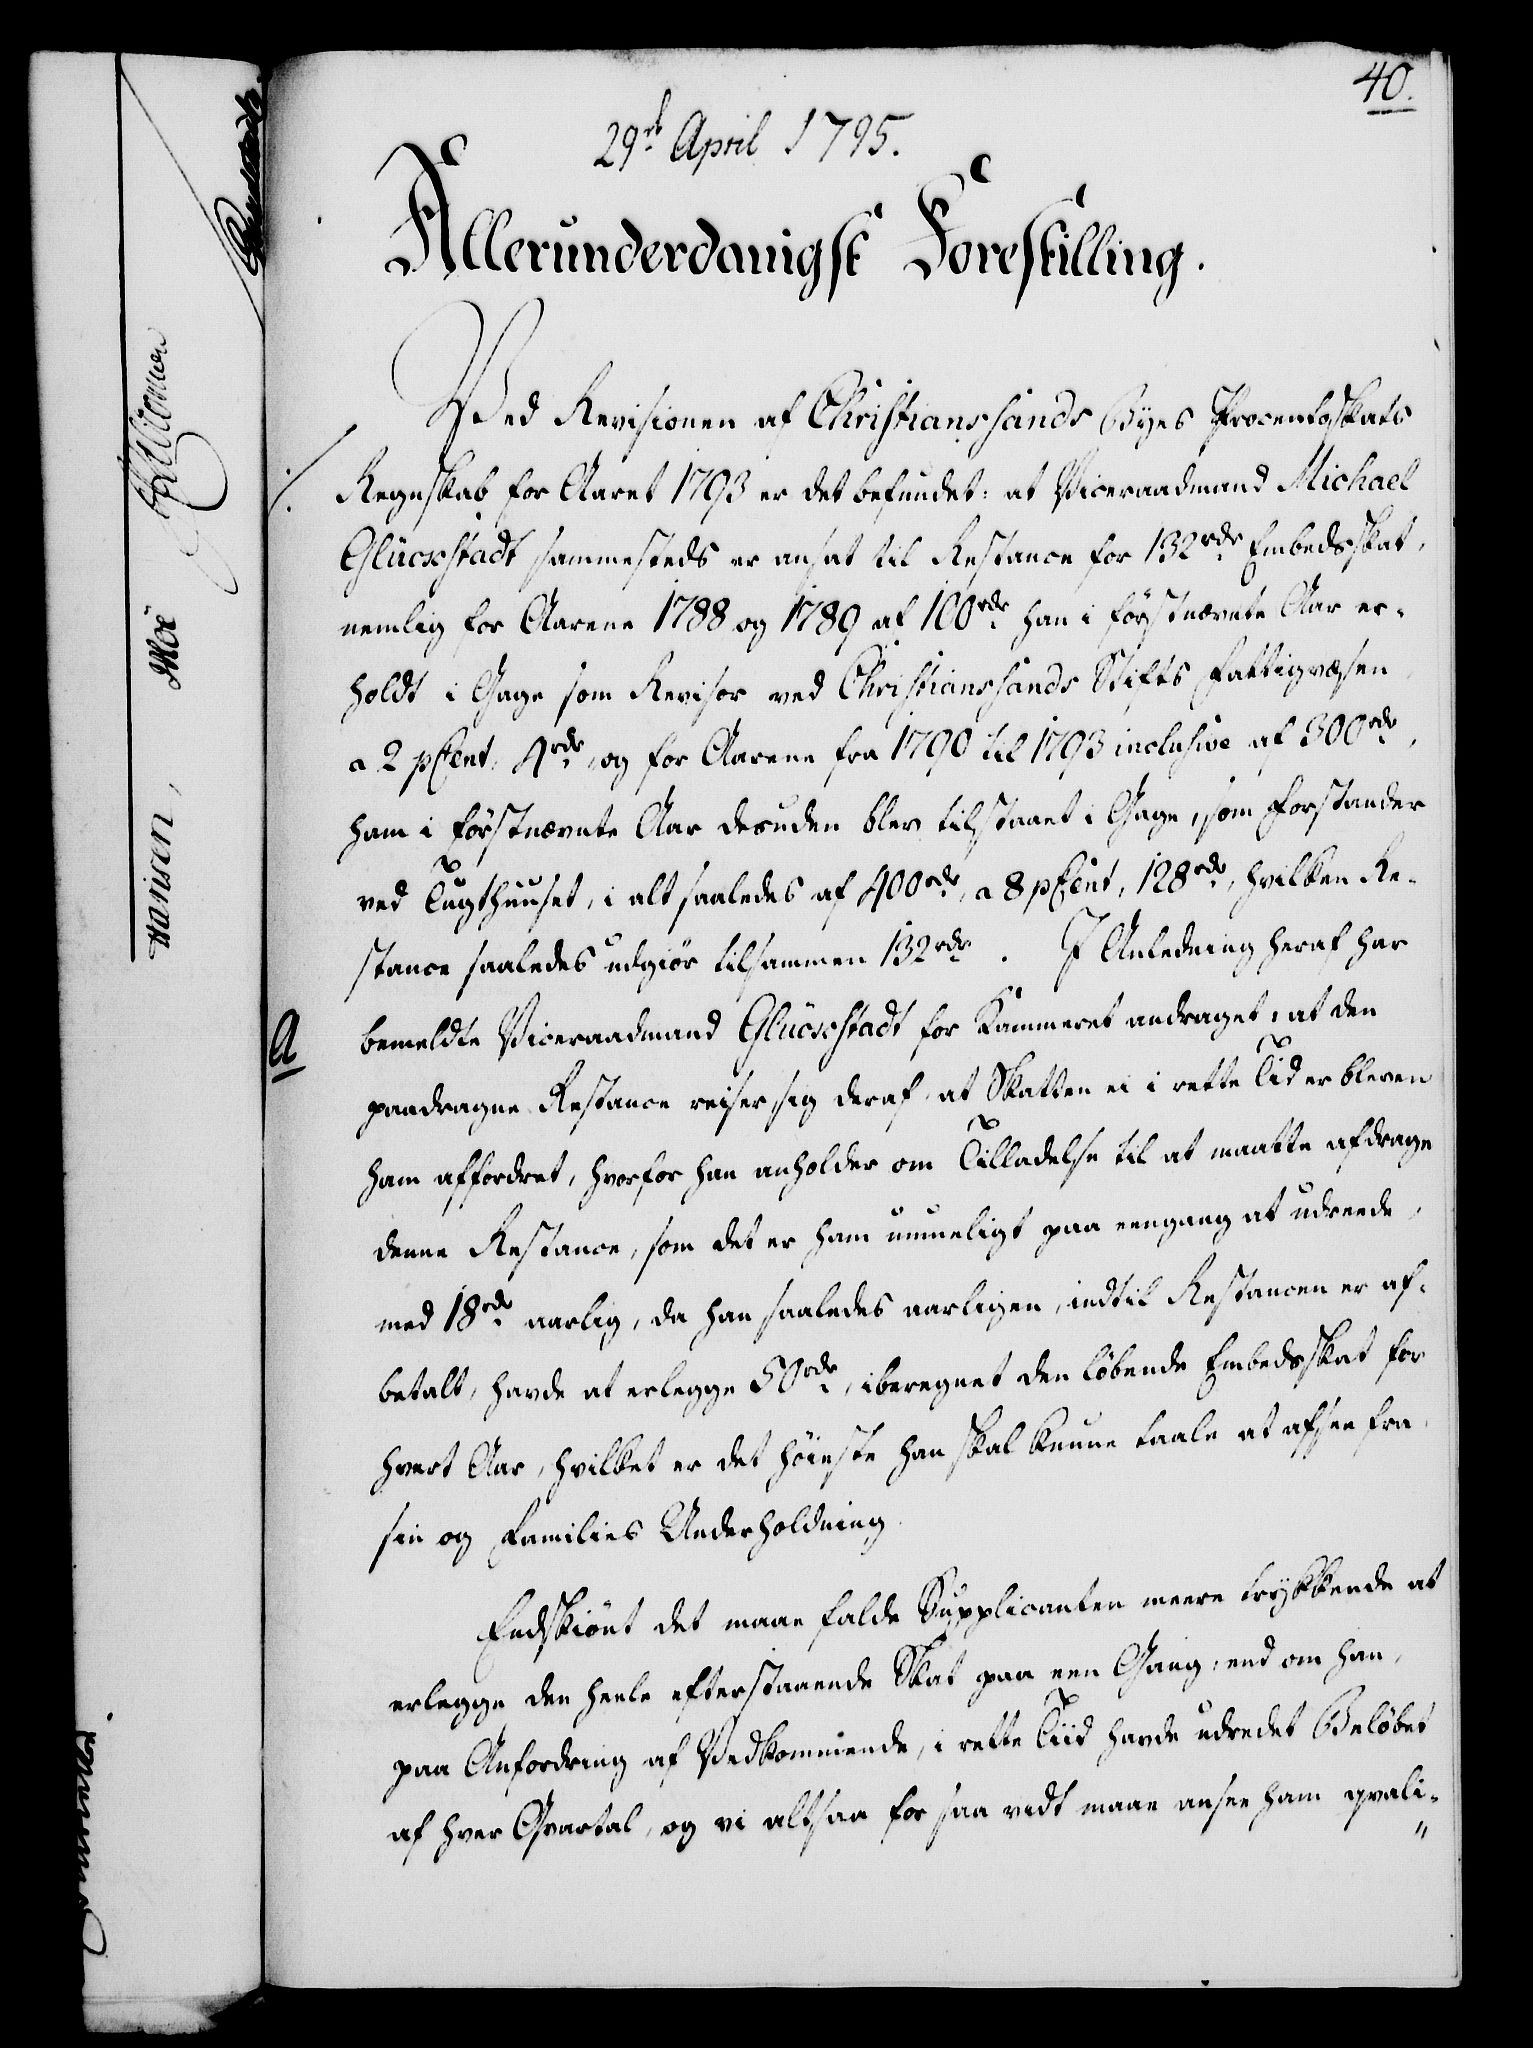 40.
29de April 1795.
Allerunderdanigst Forestilling.
Ved Revisionen af Christianssands Byes Procentoskats
Regnskab for Aaret 1793 er det befundet: at Viceraadmand Michael
Glückstadt sammesteds er ansat til Restance for 132 rdr Embedsskat,
nemlig for Aarene 1788 og 1789 af 100 rdr han i förstnævnte Aar er-
holdt i Gage som Revisor ved Christianssands Stifts Fattigvæsen
a 2 pCent, 4 rdr, og for Aarene fra 1790 til 1793 inclusive af 300 rdr,
ham i förstnævnte Aar desuden blev tilstaaet i Gage, som Forstander
ved Tugthuuset, i alt saaledes af 400 rdr, a 8 pCent, 128 rdr, hvilken Re-
stance saaledes udgiör tilsammen 132 rdr. I Anledning heraf har
A
bemeldte Viceraadmand Glückstadt for Kammeret andraget: at den
paadragne Restance reiser sig deraf, at Skatten ei i rette Tid er bleven
ham affordret, hvorfor han anholder om Tilladelse til at maatte afdrage
denne Restance, som det er ham umueligt paa eengang at udreede,
med 18 rdr aarlig, da han saaledes aarligen, indtil Restancen er af-
betalt, havde at erlegge 50 rdr, iberegnet den löbende Embedsskat for
hvert Aar, hvilket er det höieste han skal kunne taale at afsee fra
sin og Families Underholdning.
Endskiönt det maae falde Supplicanten meere trykkende at
erlegge den heele efterstaaende Skat paa een Gang, end om han,
paa Anfordring af Vedkommende, i rette Tiid havde udredet Belöbet
af hver Qvartal, og vi altsaa for saa vidt maae ansee ham qvali-
Hansen,
Moe